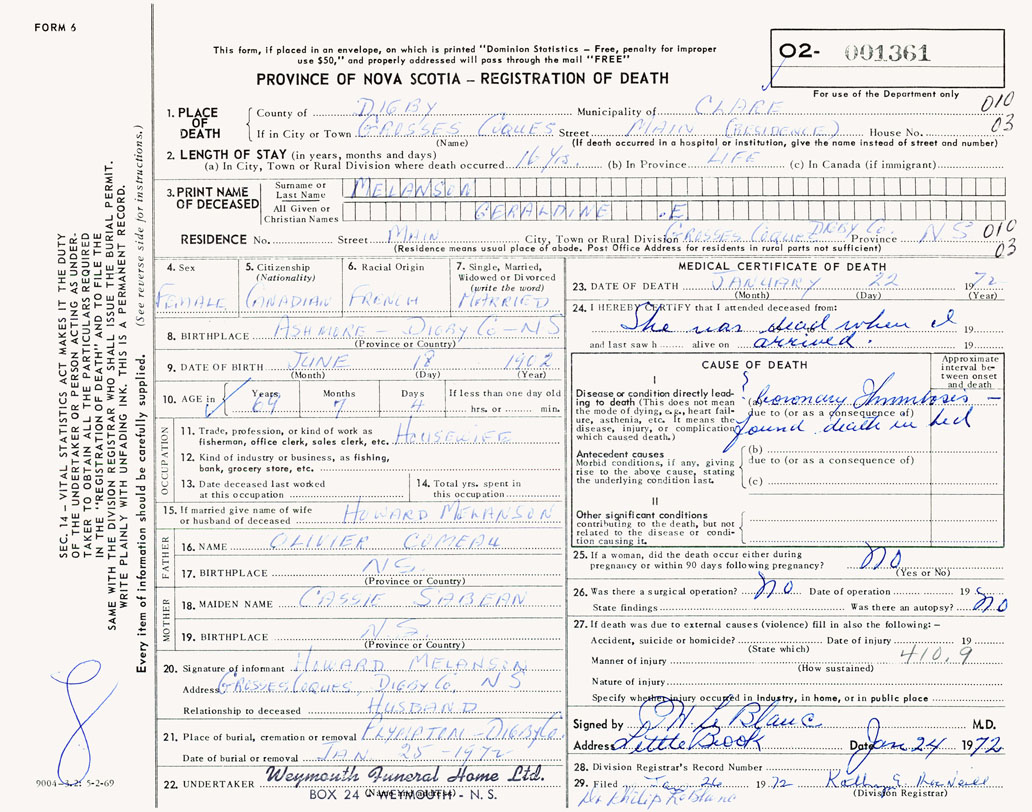 FORM 6
This form, if placed in an envelope, on which is printed "Dominion Statistics – Free, penalty for improper
use $50," and properly addressed will pass through the mail "FREE"
PROVINCE OF NOVA SCOTIA – REGISTRATION OF DEATH
O2- 001361
For use of the Department only
SEC. 14 – VITAL STATISTICS ACT MAKES IT THE DUTY
OF THE UNDERTAKER OR PERSON ACTING AS UNDER-
TAKER TO OBTAIN ALL THE PARTICULARS REQUIRED
IN THE "REGISTRATION OF DEATH" AND TO FILE THE
SAME WITH THE DIVISION REGISTRAR WHO SHALL ISSUE THE BURIAL PERMIT.
WRITE PLAINLY WITH UNFADING INK. THIS IS A PERMANENT RECORD.
Every item of information should be carefully supplied. (See reverse side for instructions.)
1. PLACE OF DEATH
County of DIGBY Municipality of CLARE 010
If in City or Town GROSSES COQUES Street MAIN (RESIDENCE) House No. 03
(Name) (If death occurred in a hospital or institution, give the name instead of street and number)
2. LENGTH OF STAY (in years, months and days)
(a) In City, Town or Rural Division where death occurred 16 Yrs. (b) In Province LIFE (c) In Canada (if immigrant)
3. PRINT NAME OF DECEASED
Surname or Last Name MELANSON
All Given or Christian Names GERALDINE .E
RESIDENCE No. Street MAIN City, Town or Rural Division GROSSES COQUES DIGBY CO. Province NS 010
(Residence means usual place of abode. Post Office Address for residents in rural parts not sufficient) 03
4. Sex FEMALE
5. Citizenship (Nationality) CANADIAN
6. Racial Origin FRENCH
7. Single, Married, Widowed or Divorced (write the word) MARRIED
8. BIRTHPLACE ASHMORE – DIGBY CO – NS
(Province or Country)
9. DATE OF BIRTH JUNE 18 1902
(Month) (Day) (Year)
10. AGE in Years 69 Months 7 Days 4 If less than one day old hrs. or min.
OCCUPATION
11. Trade, profession, or kind of work as HOUSEWIFE
fisherman, office clerk, sales clerk, etc.
12. Kind of industry or business, as fishing,
bank, grocery store, etc.
13. Date deceased last worked
at this occupation
14. Total yrs. spent in
this occupation
15. If married give name of wife
or husband of deceased HOWARD MELANSON
FATHER
16. NAME OLIVIER COMEAU
17. BIRTHPLACE N.S.
(Province or Country)
MOTHER
18. MAIDEN NAME CASSIE SABEAN
19. BIRTHPLACE N.S.
(Province or Country)
20. Signature of informant HOWARD MELANSON
Address GROSSES COQUES, DIGBY CO. NS
Relationship to deceased HUSBAND
21. Place of burial, cremation or removal PLYMPTON – DIGBY CO.
Date of burial or removal JAN 25 – 1972
22. UNDERTAKER Weymouth Funeral Home Ltd.
BOX 24 – WEYMOUTH – N. S.
9004-1.2: 5-2-69
MEDICAL CERTIFICATE OF DEATH
23. DATE OF DEATH JANUARY 22 1972
(Month) (Day) (Year)
24. I HEREBY CERTIFY that I attended deceased from:
She was dead when I 19
and last saw h alive on arrived. 19
CAUSE OF DEATH
Approximate interval between onset and death
I
Disease or condition directly lead-
ing to death (This does not mean
the mode of dying, e.g., heart fail-
ure, asthenia, etc. It means the
disease, injury, or complication
which caused death.)
(a) Coronary Thrombosis –
due to (or as a consequence of)
found death in bed
Antecedent causes
Morbid conditions, if any, giving
rise to the above cause, stating
the underlying condition last.
(b)
due to (or as a consequence of)
(c)
II
Other significant conditions
contributing to the death, but not
related to the disease or condi-
tion causing it.
25. If a woman, did the death occur either during
pregnancy or within 90 days following pregnancy? No
(Yes or No)
26. Was there a surgical operation? No Date of operation 19
State findings Was there an autopsy? No
27. If death was due to external causes (violence) fill in also the following:–
Accident, suicide or homicide? Date of injury 19
(State which) 410.9
Manner of injury
(How sustained)
Nature of injury
Specify whether injury occurred in Industry, in home, or in public place
Signed by P.H. Le Blanc M.D.
Address Little Brook Date Jan 24 1972
28. Division Registrar's Record Number
29. Filed Jan 26 1972
(Division Registrar)
Dr Philip R. Le Blanc